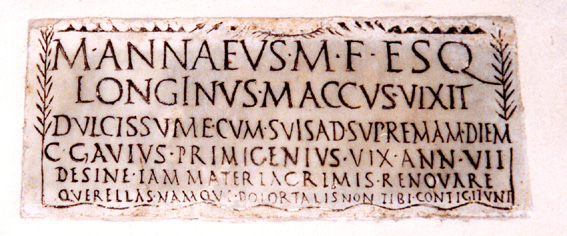 M·ANNAEVS·M·F·ESQ
LONGINVS·MACCVS·VIXIT
DVLCISSVME·CVM·SVIS·AD·SVPREMAM·DIEM
C·GAVIVS·PRIMIGENIVS·VIX·ANN·VII
DESINE·IAM MATER LACRIMIS·RENOVARE
QVERELLAS·NAMQVE·DOLOR TALIS NON TIBI CONTIGIT VNI